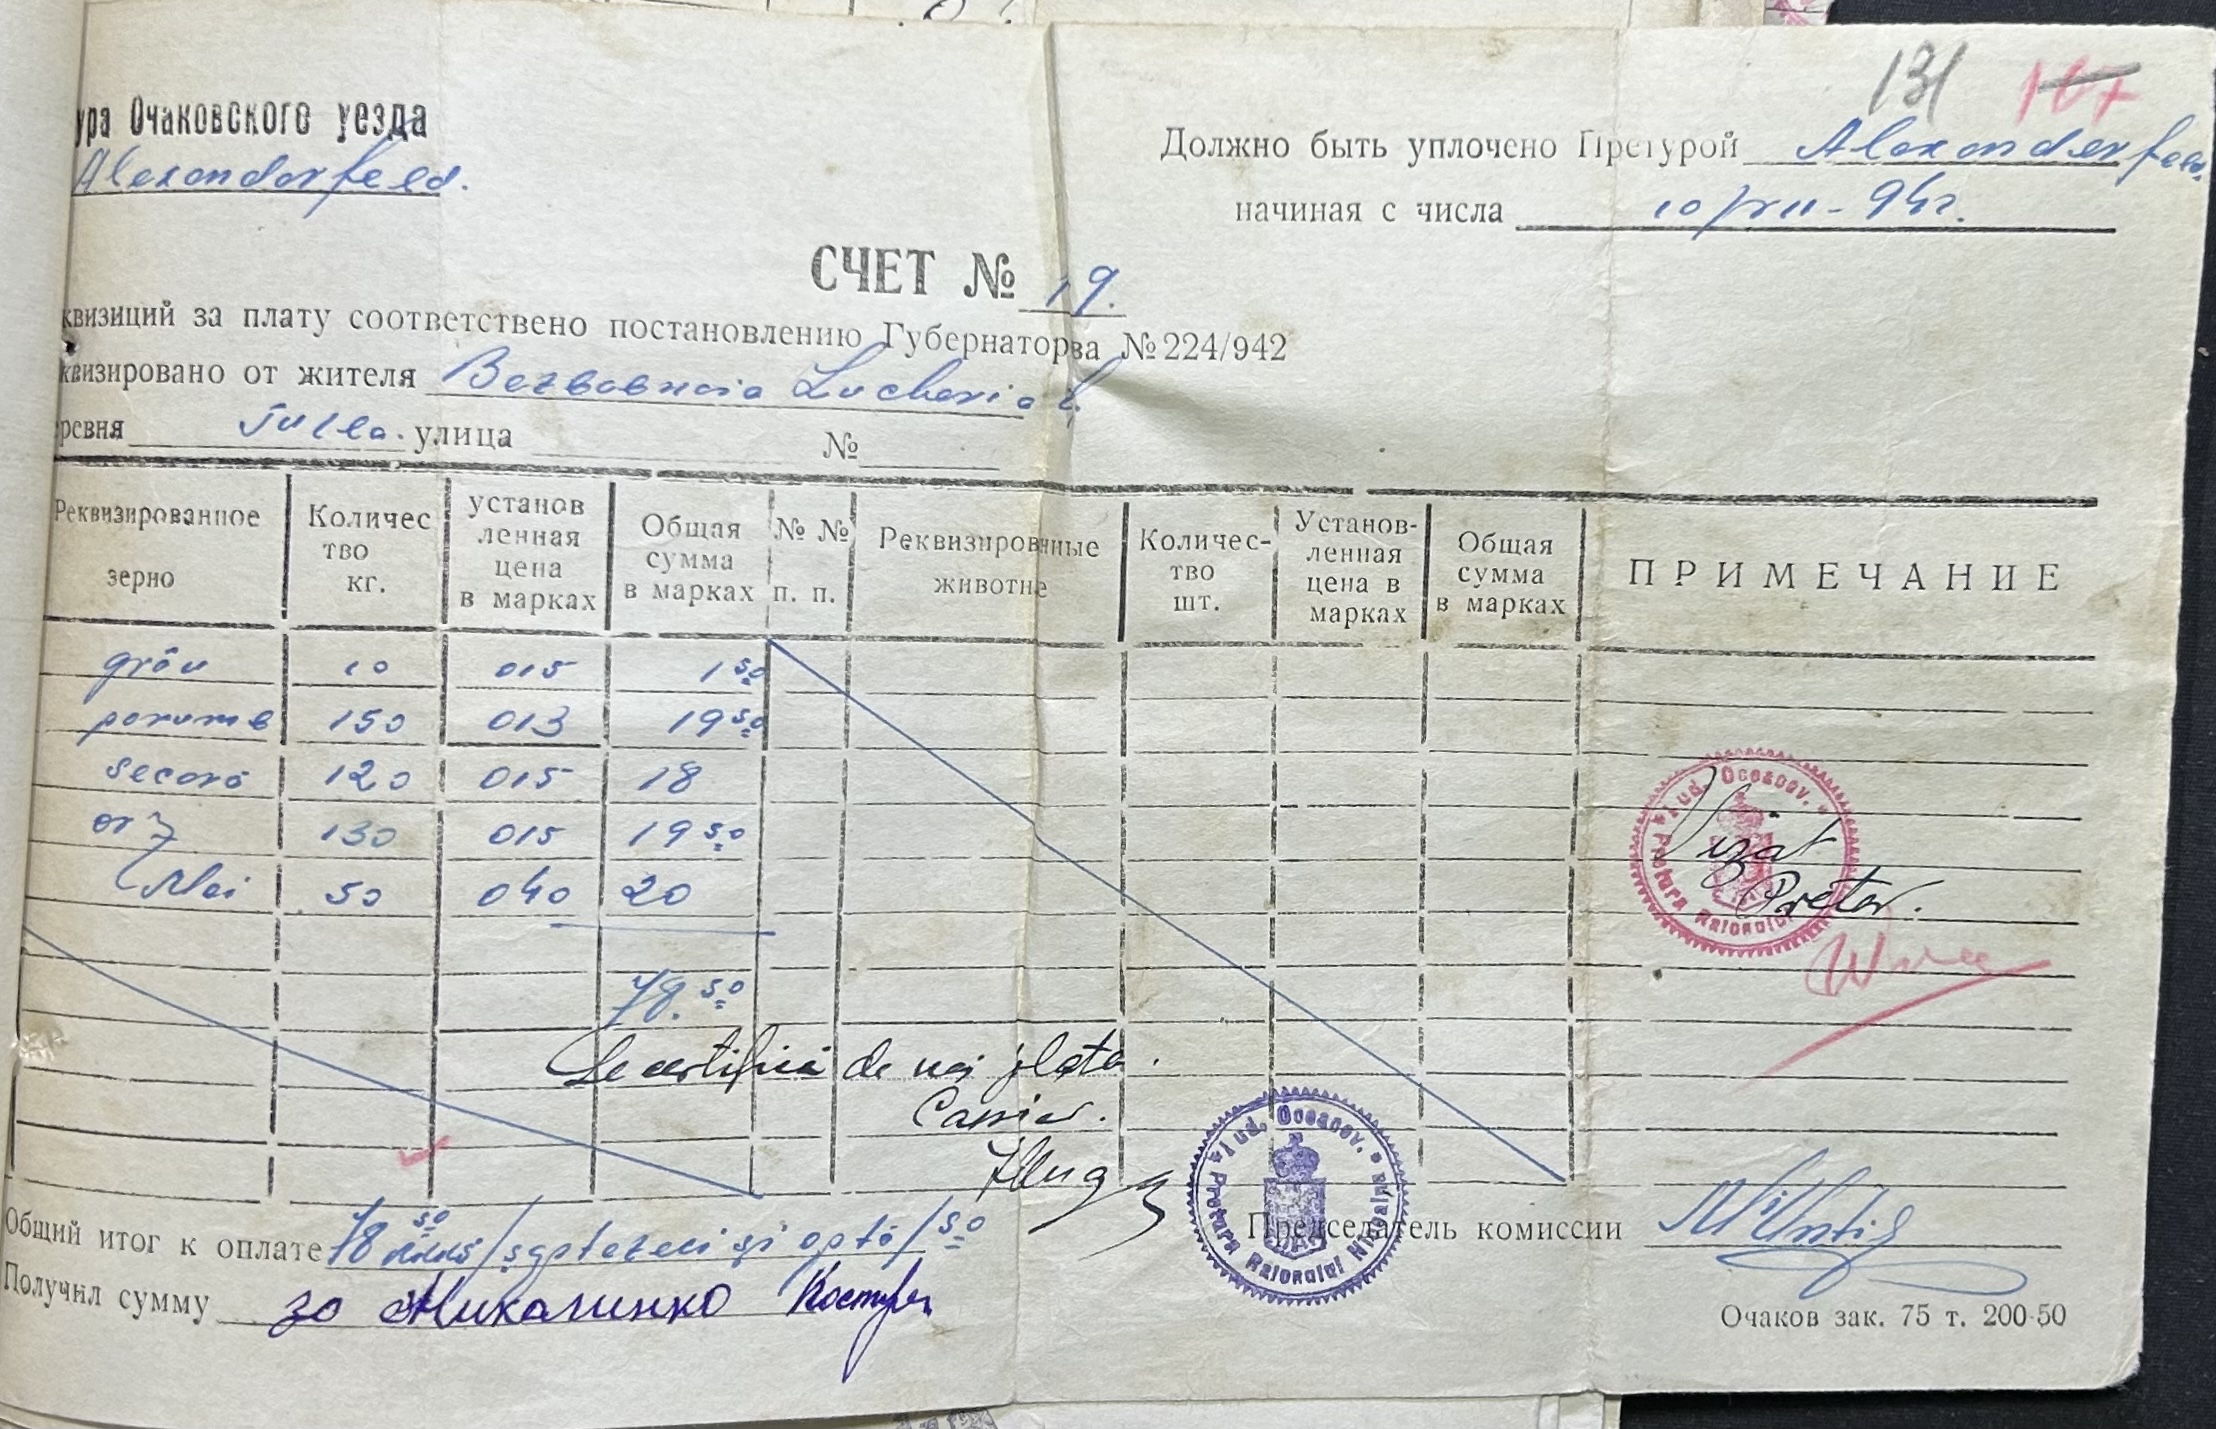 131 107
ура Очаковского уезда
Alexanderfeld.
Должно быть уплочено Претурой Alexanderfeld.
начиная с числа 10/VII-942.
СЧЕТ № 19.
квизиций за плату соответствено постановлению Губернаторва № 224/942
квизировано от жителя Bezbabnaia Lucheria
ревня Iulea. улица №
Реквизированное зерно Количес тво кг. установ ленная цена в марках Общая сумма в марках № № п. п. Реквизировнные животне Количес- тво шт. Установ- ленная цена в марках Общая сумма в марках ПРИМЕЧАНИЕ
grâu 10 015 1 50
porumb 150 013 19 50
secară 120 015 18
orz 130 015 19 50
Mei 50 040 20
78. 50
Jud. Oceacov. Pretura Raionului
Vizat
Pretor.
Se certifică de noi plata.
Casier.
Jud. Oceacov. Pretura Raionului
Общий итог к оплате 78 50 /șaptezeci și optă/50
Председатель комиссии
Получил сумму за Микалинко
Очаков зак. 75 т. 200-50